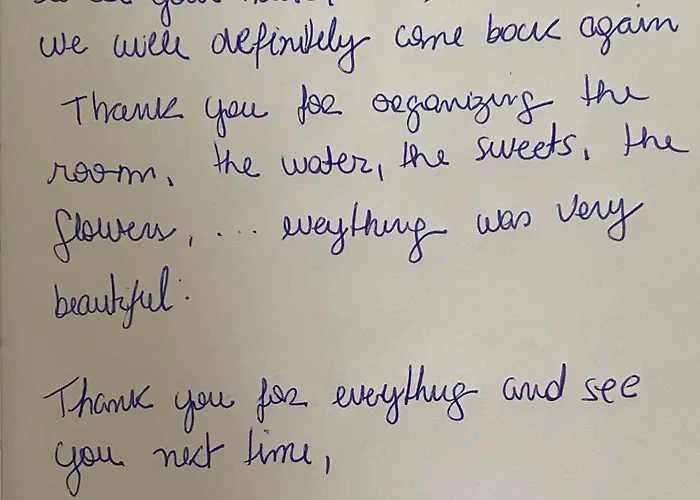 we will definitely come back again
Thank you for organizing the
room, the water, the sweets, the
flowers, ... eveything was very
beautiful.
Thank you for everything and see
you next time,